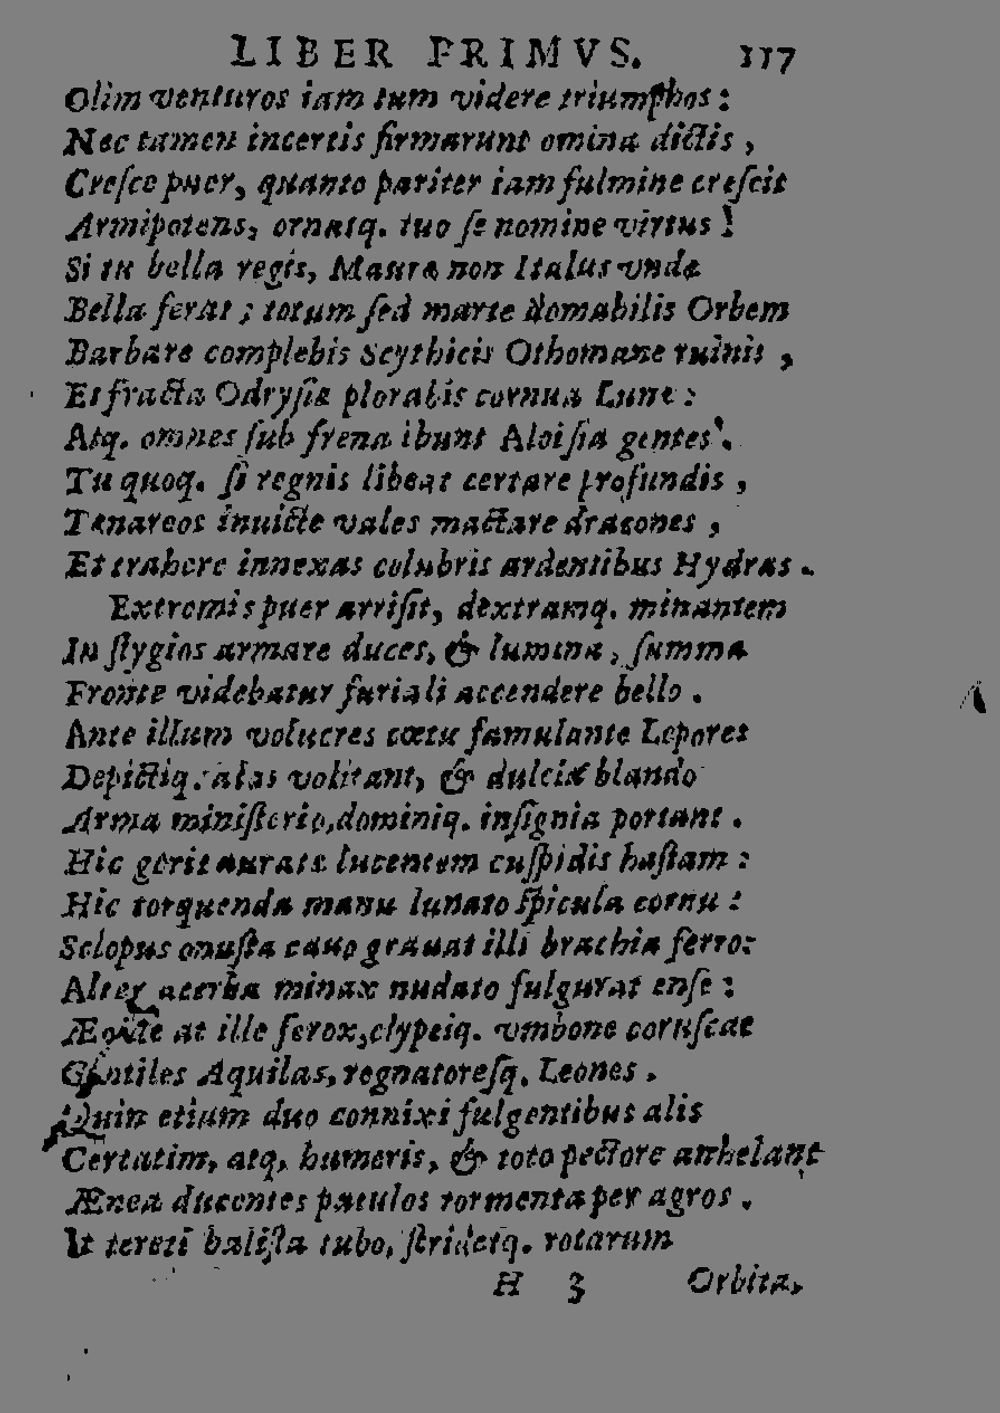 LIBER PRIMVS. 117
Olim venturos iam tum videre triumphos :
Nec tamen incertis firmarunt omina dictis ,
Cresce puer, quanto pariter iam fulmine crescit
Armipotens, ornatq. tuo se nomine virtus !
Si tu bella regis, Maura non Italus vnda
Bella ferat ; totum sed marte domabilis Orbem
Barbare complebis Scythicis Othomane ruinis ,
Et fracta Odrysiæ plorabis cornua Lunæ :
Atq. omnes sub frena ibunt Aloisia gentes .
Tu quoq. si regnis libeat certare profundis ,
Tænareos inuicte vales mactare dracones ,
Et trahere innexas colubris ardentibus Hydras .
Extremis puer arrisit, dextramq. minantem
In stygios armare duces, & lumina , summa
Fronte videbatur furiali accendere bello .
Ante illum volucres cœtu famulante Lepores
Depictiq. alas volitant, & dulcia blando
Arma ministerio,dominiq. insignia portant .
Hic gerit auratæ lucentem cuspidis hastam :
Hic torquenda manu lunato spicula cornu :
Sclopus onusta cauo grauat illi brachia ferro:
Alter acerba minax nudato fulgurat ense :
Ægide at ille ferox,clypeiq. vmbone coruscat
Gentiles Aquilas, regnatoresq. Leones .
Quin etium duo connixi fulgentibus alis
Certatim, atq. humeris, & toto pectore anhelant
Ænea ducentes patulos tormenta per agros .
It tereti balista tubo, stridetq. rotarum
H 3 Orbita,